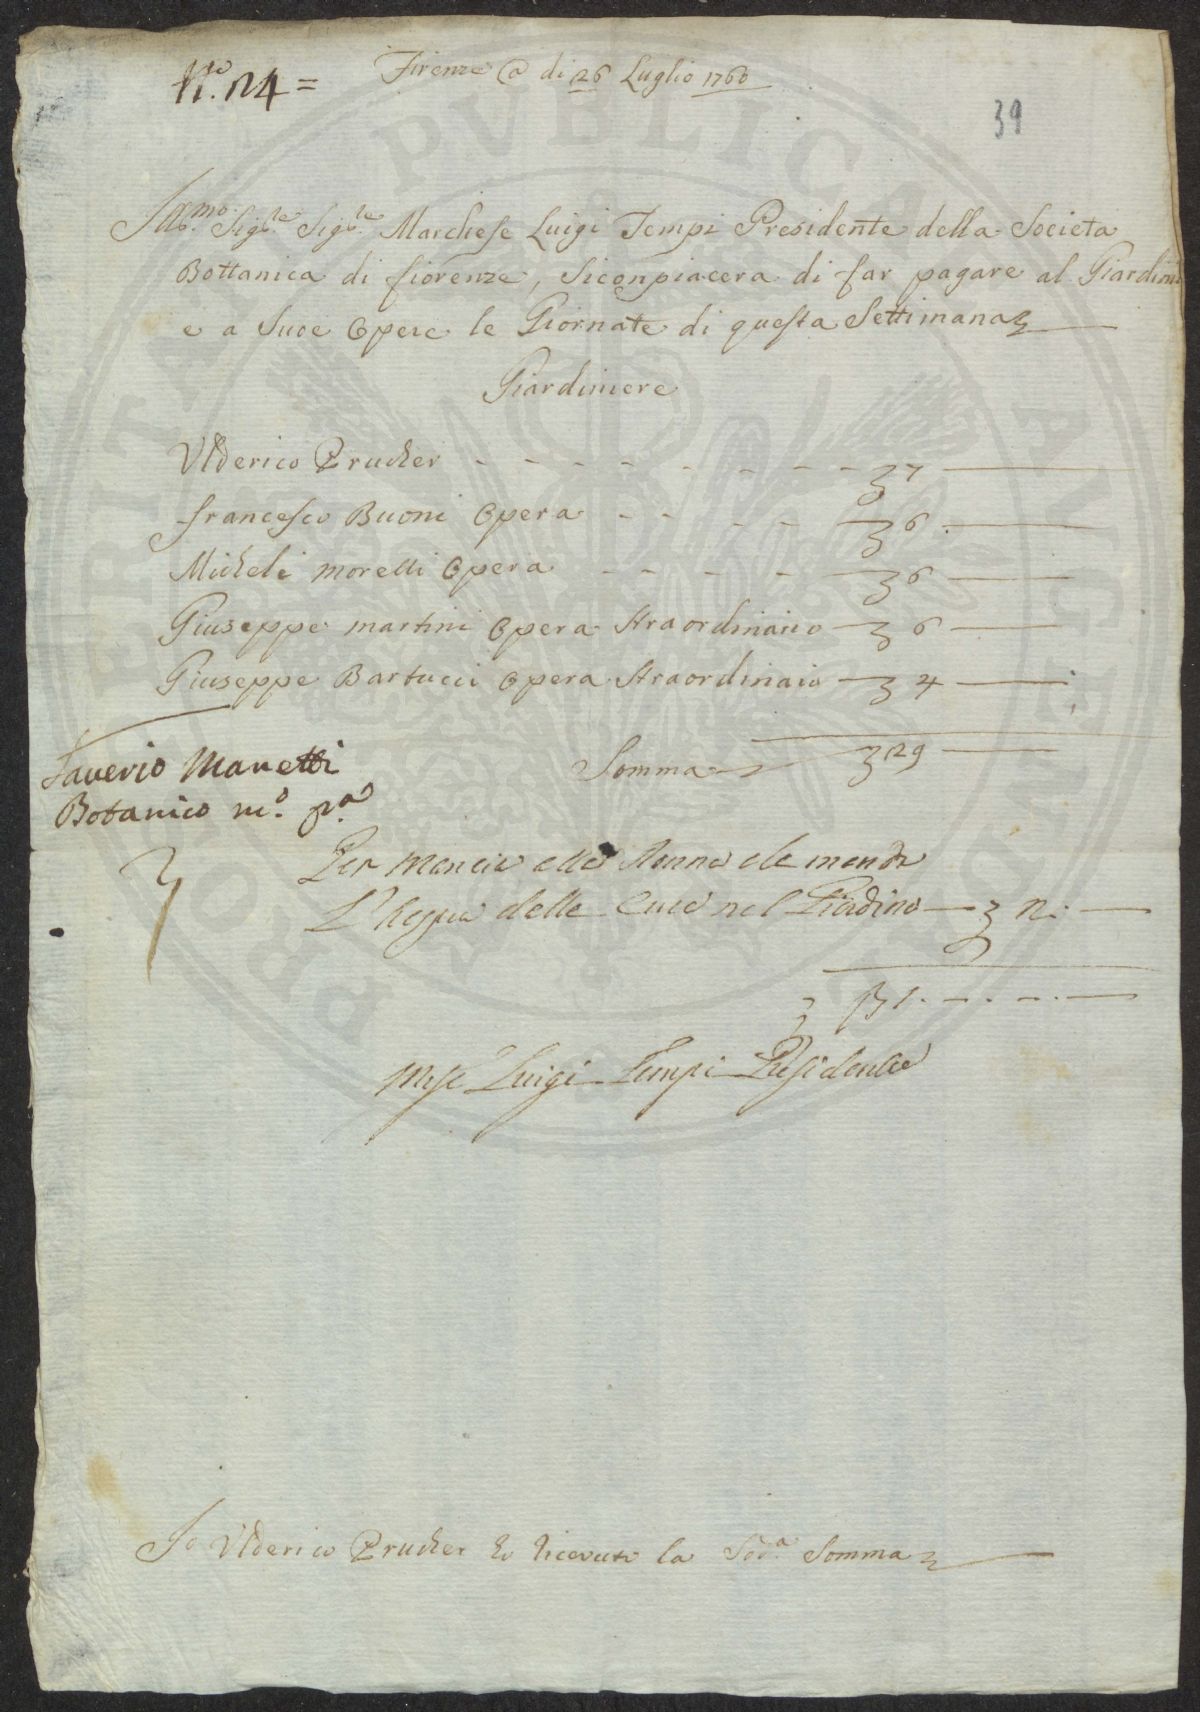 N.º 24 =
Firenze @ di 26 Luglio 1760
39
Ill.mo Sig.re Sig.re Marchese Luigi Tempi Presidente della Societa
Bottanica di fiorenze, Siconpiacera di far pagare al Giardini
e a Suoe Opere le Giornate di questa Settimana
Giardiniere
Ulderico Prucker - - - - - - - - 7
francesco Buoni Opera - - - - 6
Micheli morelli Opera - - - - 6
Giuseppe martini Opera Straordinario 6
Giuseppe Bartucci Opera Straordinaio 4
Somma 29
Saverio Manetti
Botanico m.º p.a
Per mancia alle
L'Acqua delle nel Giardino 2
31
Luigi Tempi Presidente
Io Ulderico Prucker ho riceuuto la Sod.a Somma